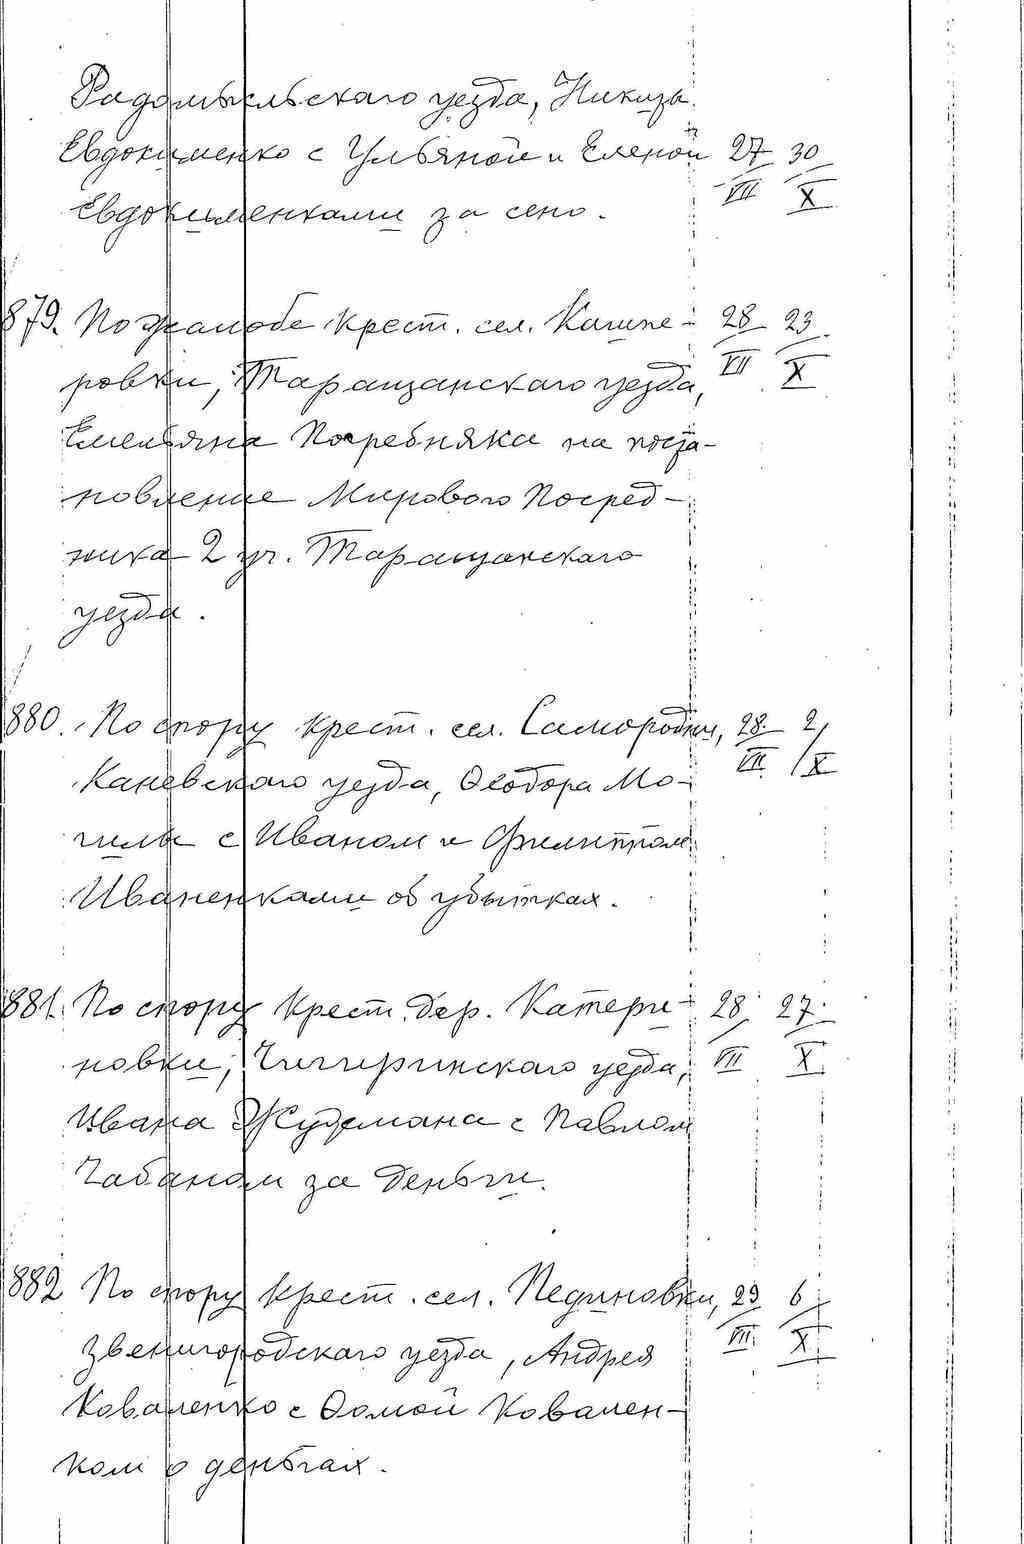 Радомысльскаго уезда, Никиты
Евдокименко с Ульяной и Еленой 27/VII 30/X
Евдокименками за сено.
879. По жалобе крест. сел. Кашпе- 28/VII 23/X
ровки, Таращанскаго уезда,
Емельяна Погребняка на поста-
новление Мирового Посред-
ника 2 уч. Таращанскаго
уезда.
880. По спору крест. сел. Самородки, 28/VII 2/X
Каневскаго уезда, Феодора Мо-
гилы с Иваном и Филиппом
Иваненками об убытках.
881. По спору крест. дер. Катери- 28/VII 27/X
новки, Чигиринскаго уезда,
Ивана с Павлом
Чабаном за деньги.
882 По спору крест. сел. Пединовки, 29/VII 6/X
Звенигородскаго уезда, Андрея
Коваленко с Фомой Ковален-
ком о деньгах.